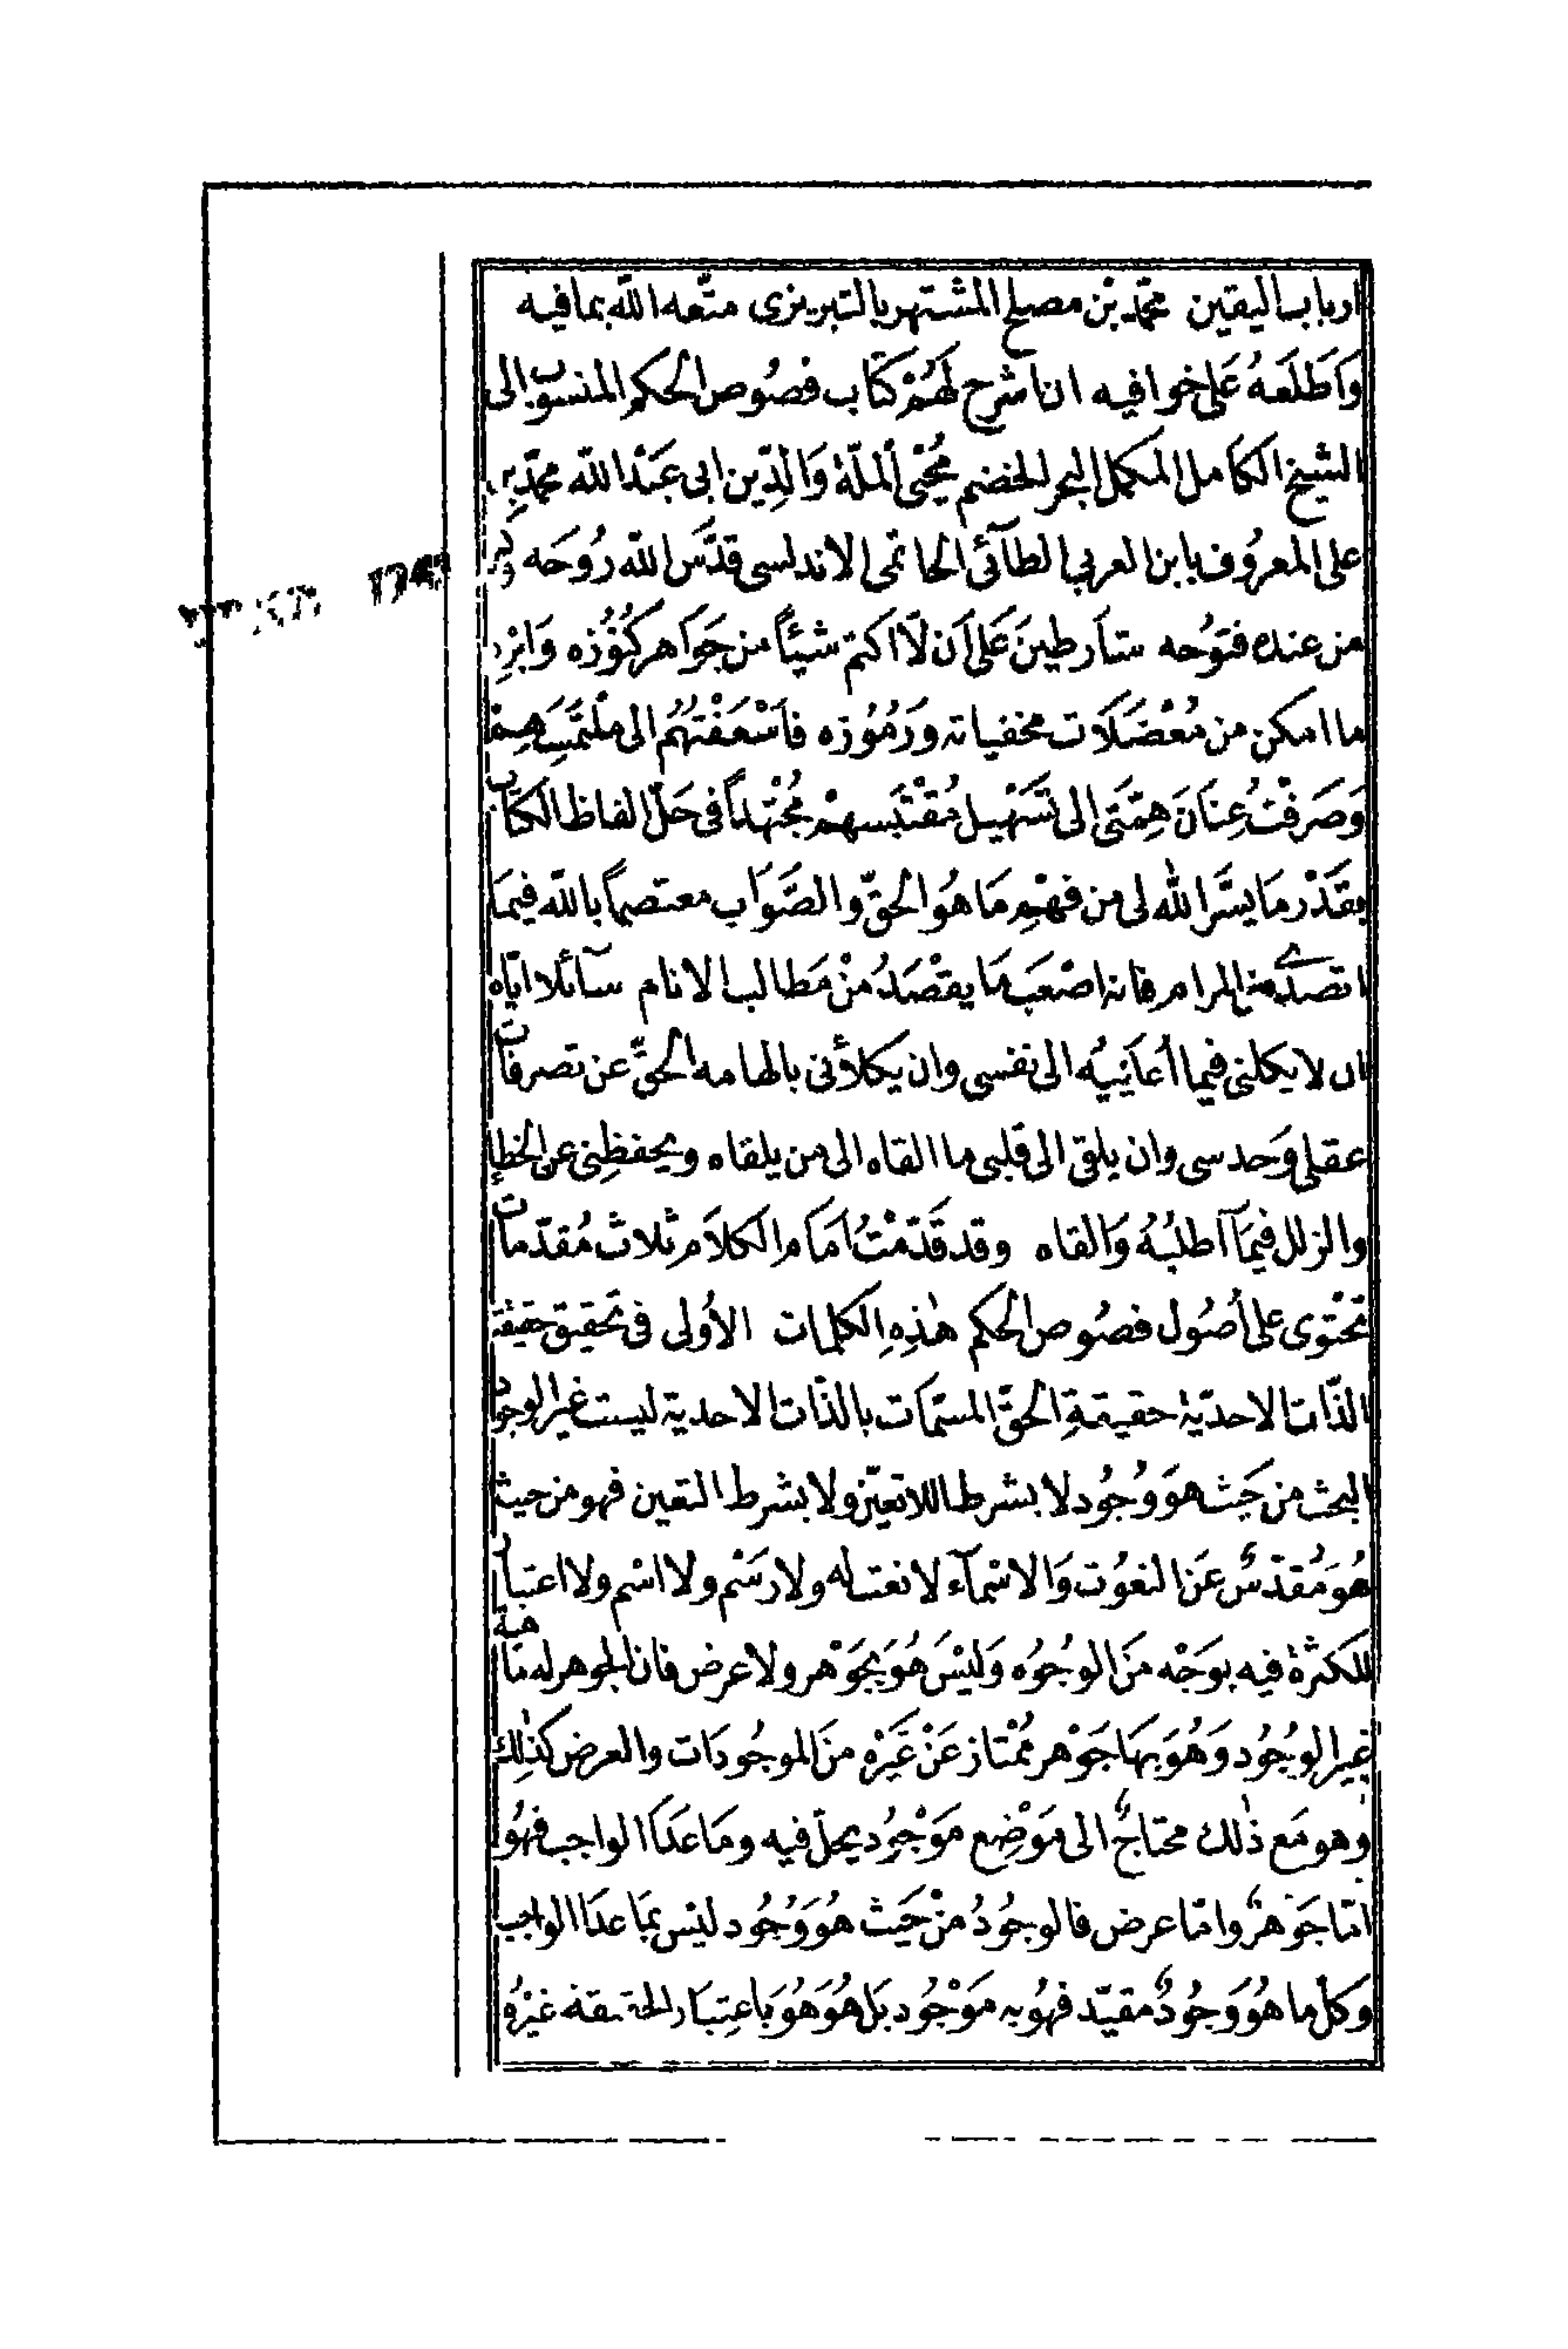 ارباب اليقين محمّد بْن مصلح المشتهر بالتبريزى متّعه الله بما فيه
وَاَطلَعَهُ عَلى خوافيه ان اشرح لَهُمْ كتَاب فصُوص الحكم المنسوب الى
الشيخ الكَامل المكمل البحر الخضم مُحْيى ٱلملّة وَالدِّين ابى عَبْد الله محمّد بن
على المعرُوف بابن العربى الطآئى الحاتمى الاندلسى قدَّس الله رُوحَه
من عنده فتوُحه شارطينَ عَلى اَن لّا اكتم شيئاً من جَوَاهر كنُوُزه وَابْرِز
ما امكن من مُعْضَلَات مخفياته وَرَمُوُزه فاَسْعَفْتهُم الى ملْتمَسَهِمْ
وَصَرفْتُ عِنَانَ هِمّتَى الى تَسَهْيل مُقْتبَسهمْ مُجْتهداً فى حَلّ الفاظ الكتاب
بقَدْر مَا يسَّر الله لى من فهْمِ مَا هُوَ الحَقّ والصَّوَاب معتصماً بالله فيمَا
اتصدّى من المرام فانه اصْعَبَ مَا يقْصَدُ منْ مَطالب الانام سآئلا ايّاه
ان لا يكلنى فيما أعَانِيهُ الى نفسى وان يكلأنى بالهامه الحَقِّ عن تصرفات
عقلى وَحدسى وان يلقى الى قلبى ما القاه الى من يلقاه ويحفظِنى عن الخطإ
والزلل فيمَا اَطلبُهُ وَالقاه وقد قَدّمْتُ اَمَام الكلاَم ثلاث مُقدّمات
تحْتوى على أصُول فصُوص الحكم هٰذِهِ الكلمات الأولى فى تحقيق حقيقة
الذّات الاحدّية حقيقةِ الحَقّ المسمّات بالذّات الاحدية ليست غير الوجود
البحث من حَيث هوَ وُجُود لا بشرط اللاتعيّن ولا بشرط التعين فهو من حيث
هُوَ مُقدّسٌ عَن النعوُت وَالاسْمآء لا نعت له ولا رسَْم ولا اسْم ولا اعتبار
للكثرة فيه بوَجْه منَ الوجُوُه وَليْسَ هُوَ بجَوْهر ولا عرض فان الجوهر له ماهية
غير الوجُود وَهُوَ بهَا جَوْهر مُمْتاز عَنْ غَيرْه منَ الموجُودَات والعرض كذٰلِك
وهو مَع ذٰلك محتاجٌ الى مَوْضِع مَوْجُود يحلّ فيه ومَا عَدَا الواجب فهُو
امّا جَوَهرٌ وامّا عرض فالوجُودُ منْ حَيث هُوَ وَُجُود ليْس بمَا عدَا الواجب
وكلّ ما هُوَ وَجُودٌ مقيّد فهُو به مَوْجُود بَل هُوَ هُوَ بَاعِتبَار الحقيقة غيْرُه